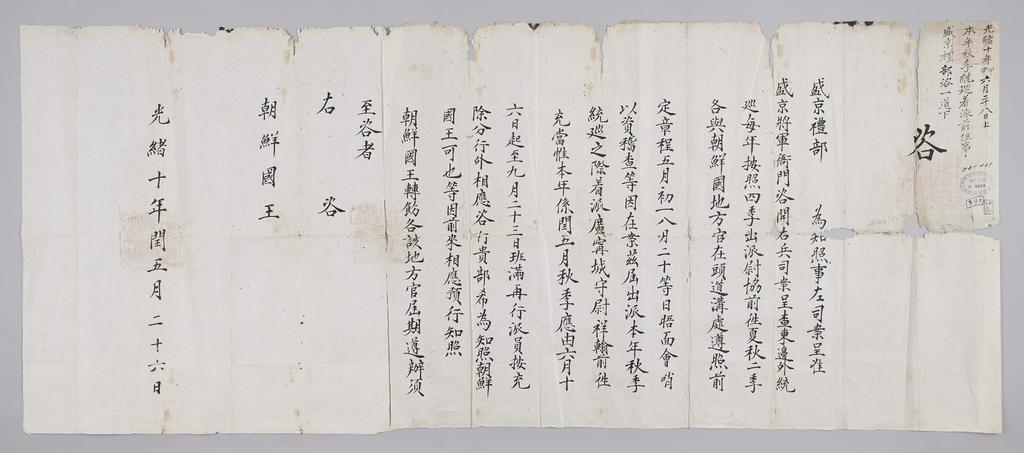 光緒十年 六月二十八日上
本年秋季統巡着派前徃事
盛京禮部咨一道下
咨
盛京禮部 為知照事左司案呈准
盛京將軍衙門咨開右兵司案呈查東邊外統
巡每年按照四季出派尉協前徃夏秋二季
各與朝鮮國地方官在頭道溝處遵照前
定章程五月初一八月二十等日晤面會哨
以資稽查等因在案茲屆出派本年秋季
統巡之際着派廣甯城守尉祥翰前徃
充當惟本年係閏五月秋季應由六月十
六日起至九月二十三日班滿再行派員按充
除分行外相應咨行貴部希為知照朝鮮
國王可也等因前來相應預行知照
朝鮮國王轉飭各該地方官屆期遵辦須
至咨者
右 咨
朝鮮國王
光緒十年閏五月二十六日